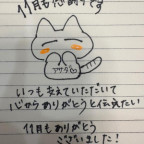 11月も終わりです
いつも支えていただいて
心からありがとうと伝えたい
11月もありがとう
ございました!